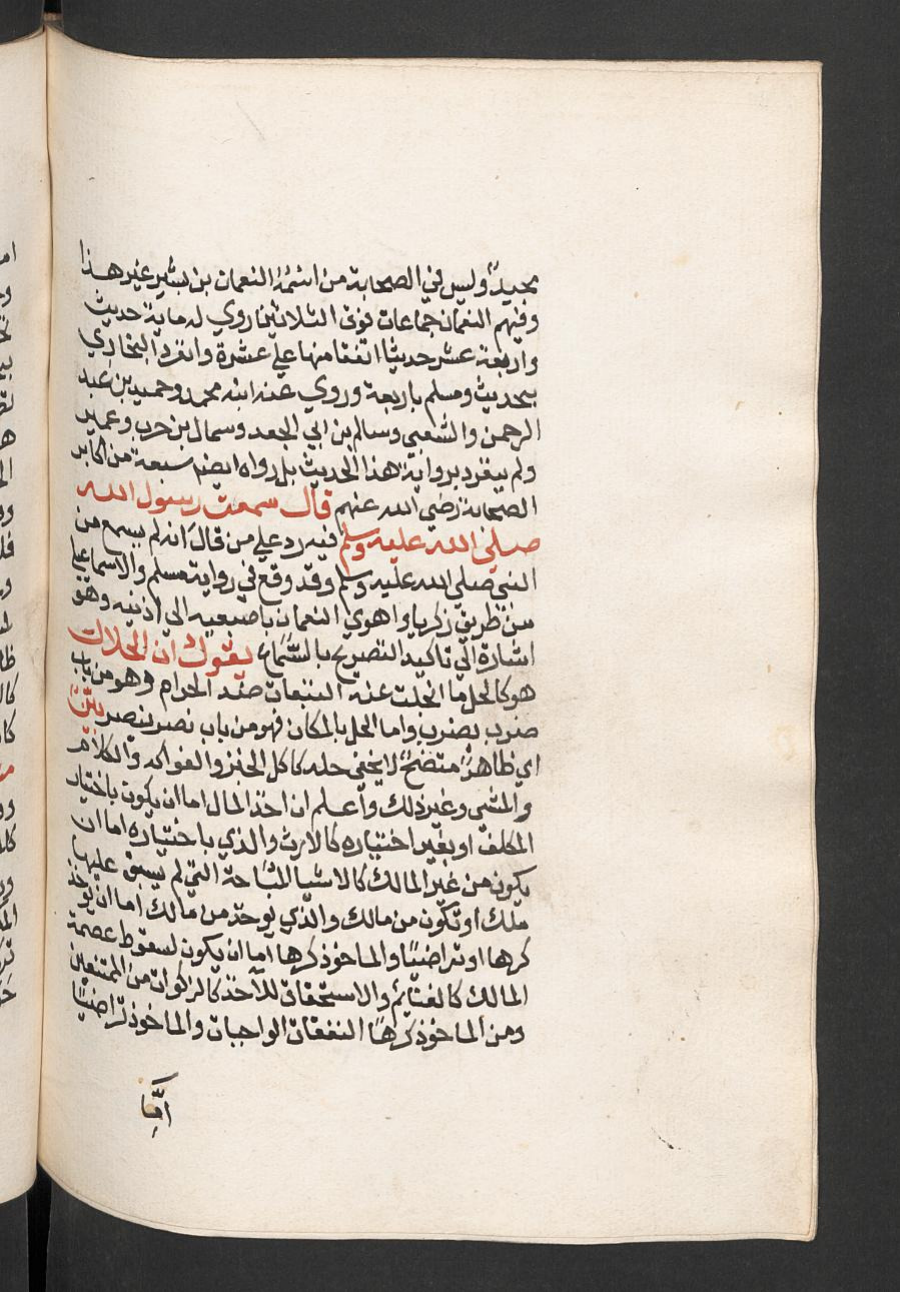 مجيدًا وليس في الصحابة من اسمه النعمان بن بشير غير هذا
وفيهم النعمان جماعات فوق الثلاثين روي له ماية حديث
واربعة عشر حديثا اتفقا منها علي عشرة وانفرد البخاري
بحديث ومسلم باربعة وروي عنه ابنه محمد وحميد بن عبد
الرحمن والشعبي وسالم بن ابي الجعد وسماك بن حرب وعمير
ولم ينفرد برواية هذا الحديث بل رواه ايضا سبعة من اكابر
الصحابة رضي الله عنهم قال سمعت رسول الله
صلي الله عليه وسلم فيه رد علي من قال انه لم يسمع من
النبي صلي الله عليه وسلم وقد وقع في رواية مسلم والاسماعيلي
من طريق زكريا واهوي النعمان باصبعيه الي اذنيه وهو
اشارة الي تاكيد التصريح بالسماع يقول ان الحلال
هو كالحل ما انحلت عنه التبعات ضد الحرام وهو من باب
ضرب يضرب واما الحل بالمكان فهو من باب نصر ينصر بيّن
اي ظاهر متضح لا يخفي حله كاكل الخبز والفواكه والكلام
والمشي وغير ذلك وأعلم ان اخذ المال اما ان يكون باختيار
المكلف او بغير اختياره كالارث والذي باختياره اما ان
يكون من غير المالك كالاشيا المباحة التي لم يسبق عليها
ملك او تكون من مالك والذي يوخذ من مالك اما ان يوخذ
كرها او تراضيًا والماخوذ كرها اما ان يكون لسقوط عصمة
المالك كالغنايم والاستحقاق للآخذ كالزكوات من الممتنعين
ومن الماخوذ كرهًا النفقات الواجبات والماخوذ تراضيًا
امّا